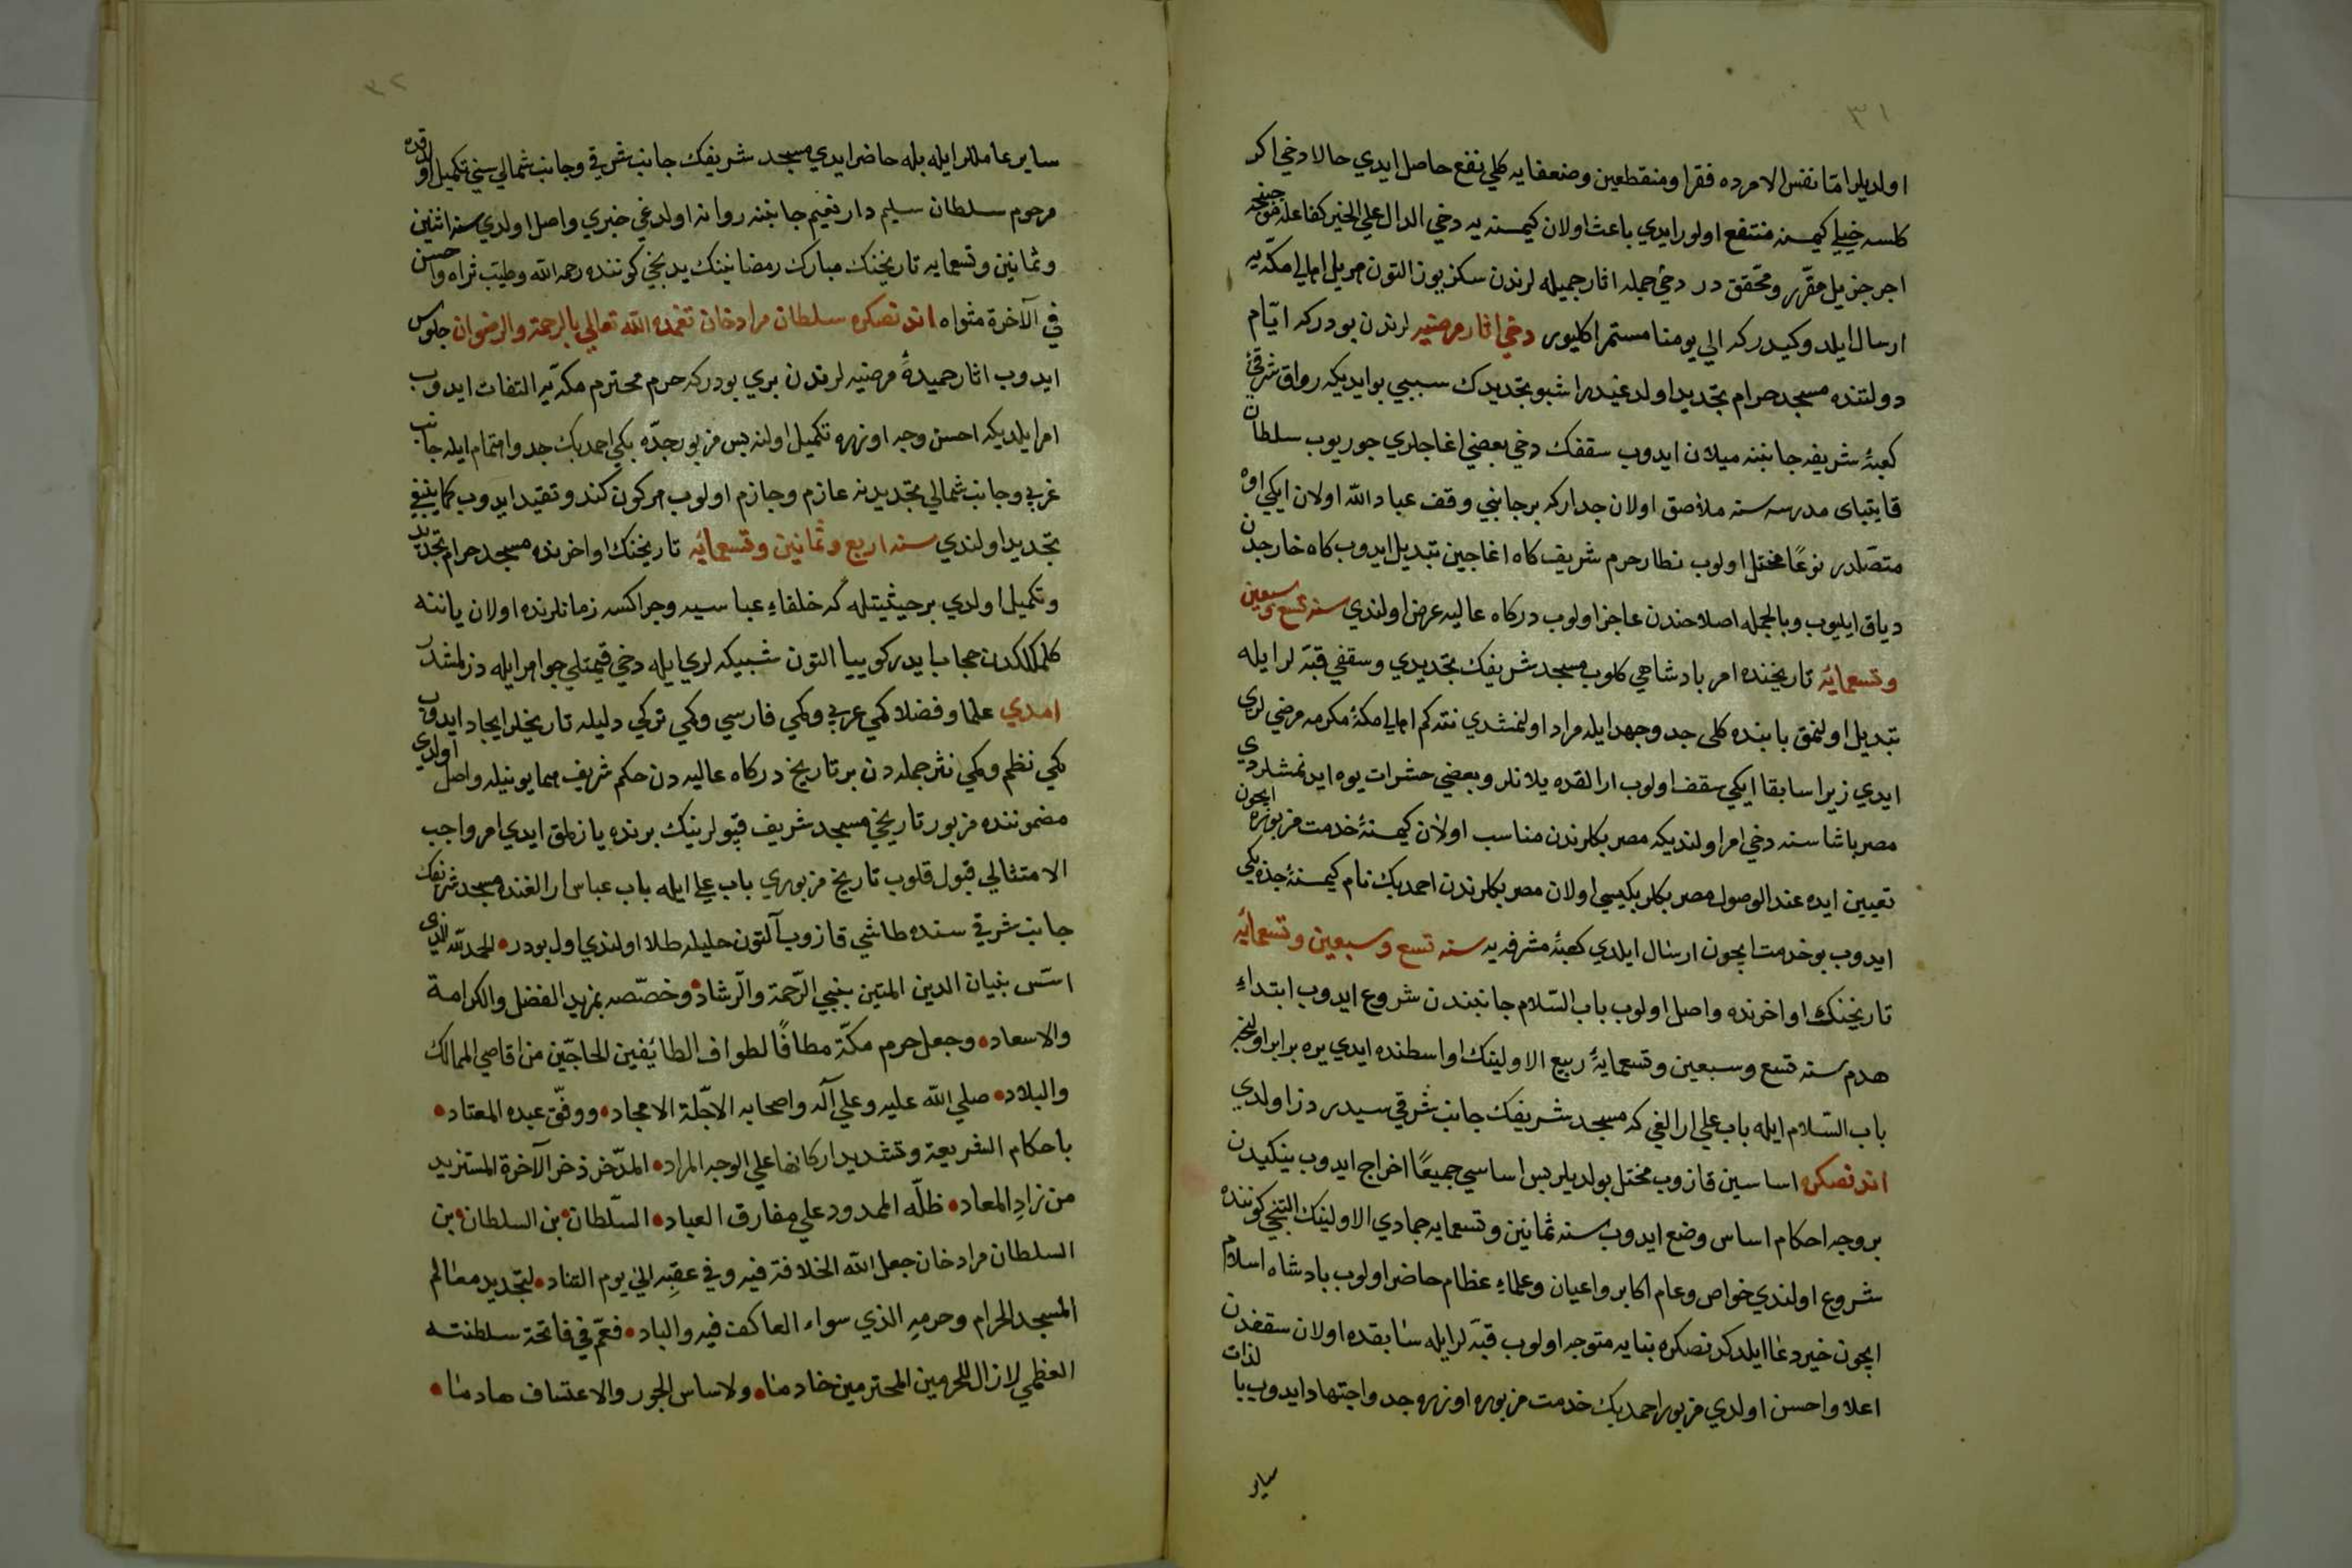 ٣١
اولديلر اما نفس الامرده فقرا ومنقطعين وضعفايه كلي نفع حاصل ايدي حالا دخي اكر
كلسه خيلي كيمسنه منتفع اولور ايدي باعث اولان كيمسنه يه دخي الدال علي الخير كفاعله
اجر جزيل مقرر ومحقق در دخي جمله اثار جميله لرندن سكز بوز التون اهالي مكه يه
ارسال ايلدوكيدركه الي يومنا مستمرا كليور دخي اثار مرضيه لرندن بودركه ايام
دولتنده مسجد حرام تجديد اولدغيدر اشبو تجديدك سببي بو ايديكه رواق شرقي
كعبۀ شريفه جانبنه ميلان ايدوب سقفك دخي بعضي اغاجلري جوريوب سلطان
قايتباى مدرسه سنه ملاصق اولان جداركه بر جانبي وقف عباد الله اولان ايكي اوه
متصلدر نوعا مختل اولوب نظار حرم شريف كاه اغاجين تبديل ايدوب كاه خارجدن
دياق ايليوب وبالجمله اصلاحندن عاجز اولوب دركاه عاليه عرض اولندي سنه تسع وسبعين
وتسعمائه تاريخنده امر بادشاهي كلوب مسجد شريفك تجديدي وسقفي قبه لر ايله
تبديل اولنمق بابنده كلى جد وجهد ايله مراد اولنمشدي نته كم اهالي مكۀ مكرمه مرضي لري
ايدي زيرا سابقا ايكي سقف اولوب ارالقده يلانلر وبعضي حشرات يوه ايدنمشلردي
مصر باشا سنه دخي امر اولنديكه مصر بكلرندن مناسب اولان كيمسنۀ خدمت مزبوره ايچون
تعيين ايده عند الوصول مصر بكلر بكيسي اولان مصر بكلرندن احمد بك نام كيمسنۀ
ايدوب بو خدمت ايچون ارسال ايلدي كعبۀ مشرفه يه سنه تسع وسبعين وتسعمائه
تاريخنك اواخرنده واصل اولوب باب السلام جانبندن شروع ايدوب ابتداء
هدم سنه تسع وسبعين وتسعمايۀ ربيع الاولينك اواسطنده ايدي يره برابر اولنجه
باب السلام ايله باب علي ارالغي كه مسجد شريفك جانب شرقي سيدر دز اولدي
اندنصكره اساسين قازوب مختل بولديلر پس اساسي جميعا اخراج ايدوب ينكيدن
بر وجه احكام اساس وضع ايدوب سنه ثمانين وتسعمايه جمادي الاولينك التنجي كوننده
شروع اولندي خواص وعام اكابر واعيان وعلماء عظام حاضر اولوب بادشاه اسلام
ايچون خير دعا ايلدكدنصكره بنايه متوجه اولوب قبه لر ايله سابقده اولان سقفدن
اعلا واحسن اولدي مزبور احمد بك خدمت مزبوره اوزره جد واجتهاد ايدوب بالذات
ساير
٣٢
ساير عاملر ايله بله حاضر ايدي مسجد شريفك جانب شرقي وجانب شمالي سني تكميل اولدقده
مرحوم سلطان سليم دار نعيم جانبنه روانه اولدغي خبري واصل اولدي سنه اثنين
وثمانين وتسعمايه تاريخنك مبارك رمضاننك يدنجي كوننده رحمه الله وطيب ثراه واحسن
في الآخرة مثواه اندنصكره سلطان مراد خان تغمده الله تعالي بالرحمة والرضوان جلوس
ايدوب اثار حميدۀ مرضيه لرندن بري بودركه حرم محترم مكه يه التفات ايدوب
امر ايلديكه احسن وجه اوزره تكميل اولنه پس مزبور جده بكي احمد بك جد واهتمام ايله جانب
غربي وجانب شمالي تجديدينه عازم وجازم اولوب هركون كندو تقيد ايدوب كما ينبغي
تجديد اولندي سنه اربع وثمانين وتسعمائه تاريخنك اواخرنده مسجد حرام تجديد
وتكميل اولدي بر حيثيتله كه خلفاء عباسيه وجراكسه زمانلرنده اولان ياننه
كلمكلكدن حجاب ايدر كوييا التون شبيكه لري ايله دخي قيمتلي جواهر ايله دزلمشدر
امدي علما وفضلا كمي عربي وكمي فارسي وكمي تركي دليله تاريخلر ايجاد ايدوب
كمي نظم وكمي نثر جمله دن بر تاريخ دركاه عاليه دن حكم شريف همايونيله واصل اولدي
مضموننده مزبور تاريخي مسجد شريف قپولرينك برنده يازلمق ايدي امر واجب
الامتثالي قبول قلوب تاريخ مزبوري باب علي ايله باب عباس ارالغنده مسجد شريفك
جانب شرقي سنده طاشي قازوب آلتون حليله طلا اولندي اول بودر الحمد لله الذي
اسس بنيان الدين المتين بنبي الرحمة والرشاد وخصصه بمزيد الفضل والكرامة
والاسعاد وجعل حرم مكة مطافا لطواف الطايفين الحاجين من اقاصي الممالك
والبلاد صلي الله عليه وعلي آله واصحابه الاجلة الامجاد ووفق عبده المعتاد
باحكام الشريعة وتشديد اركانها علي الوجه المراد المدخر ذخر الآخرة المستزيد
من زاد المعاد ظله الممدود علي مفارق العباد السلطان بن السلطان بن
السلطان مراد خان جعل الله الخلافة فيه وفي عقبه الي يوم التناد لتجديد معالم
المسجد الحرام وحرمه الذي سواء العاكف فيه والباد فعم في فاتحة سلطنته
العظمي لازال للحرمين المحترمين خادما ولاساس الجور والاعتساف هادما